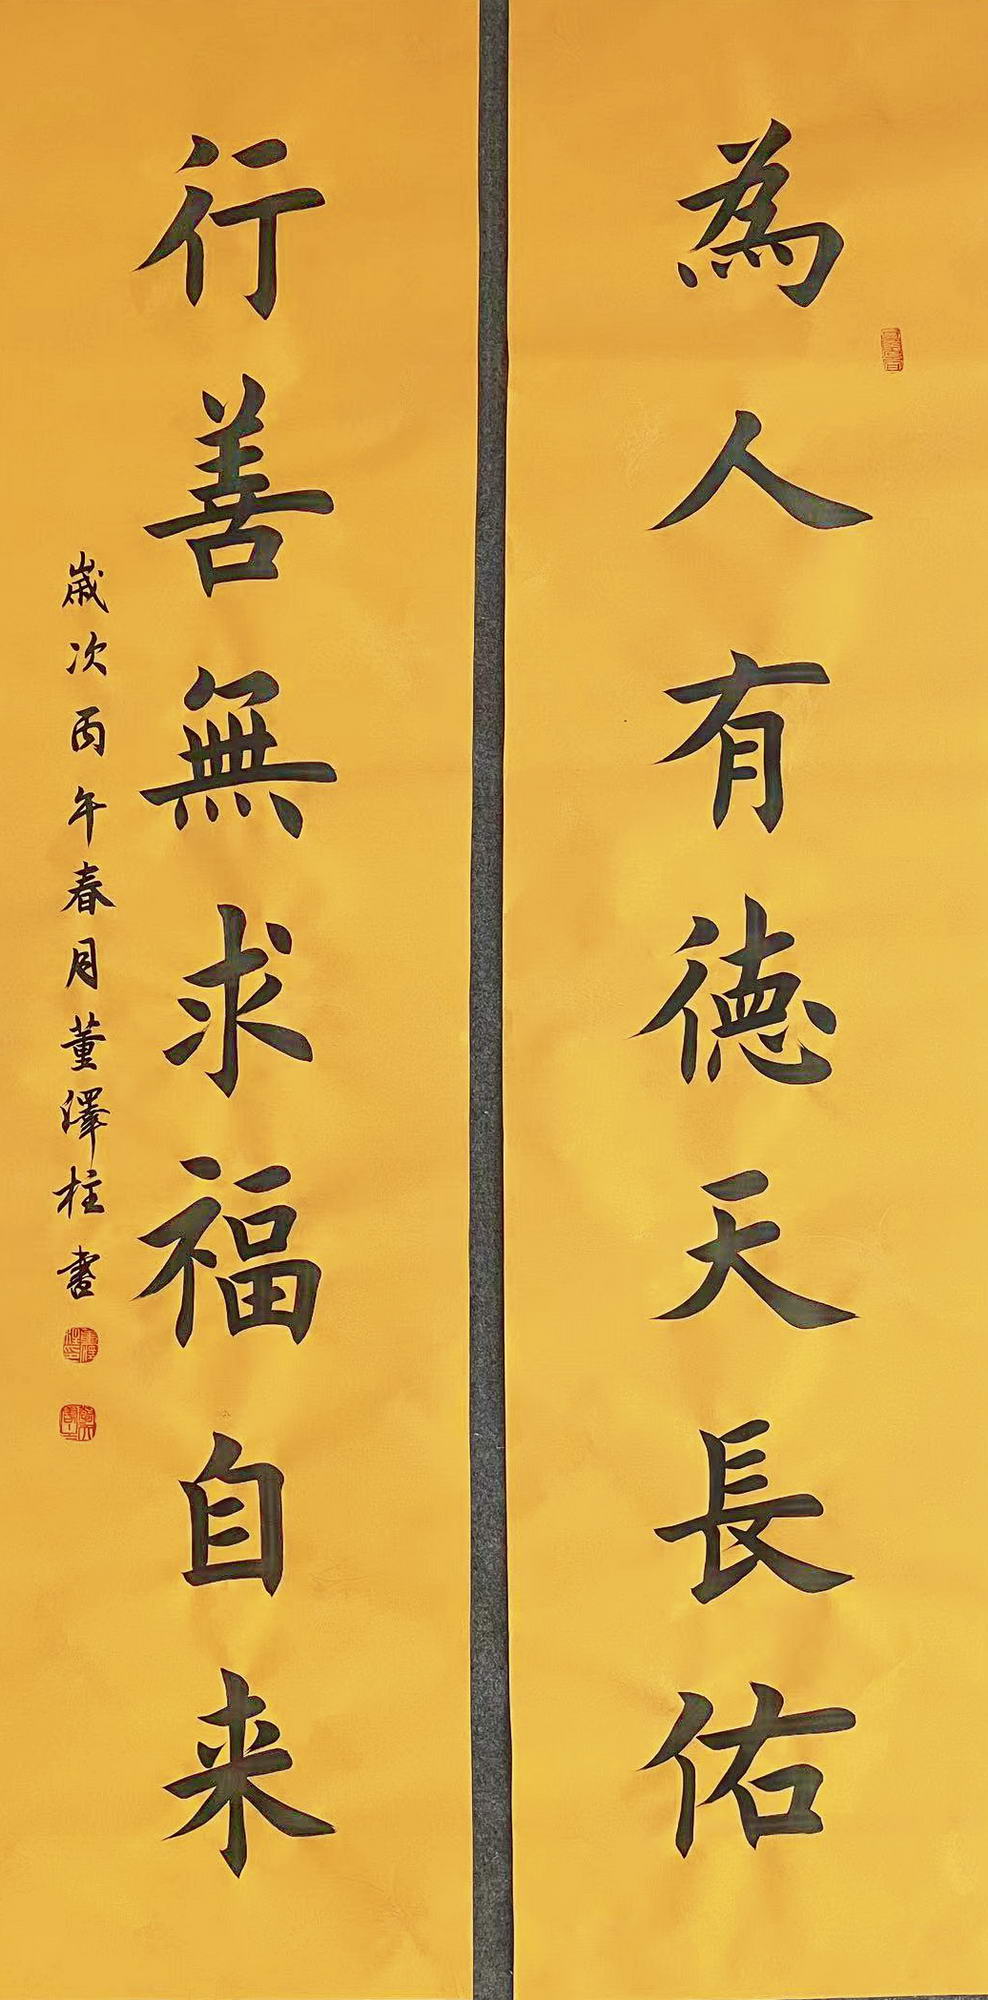 為人有徳天長佑
行善無求福自来
歲次丙午春月董澤柱書